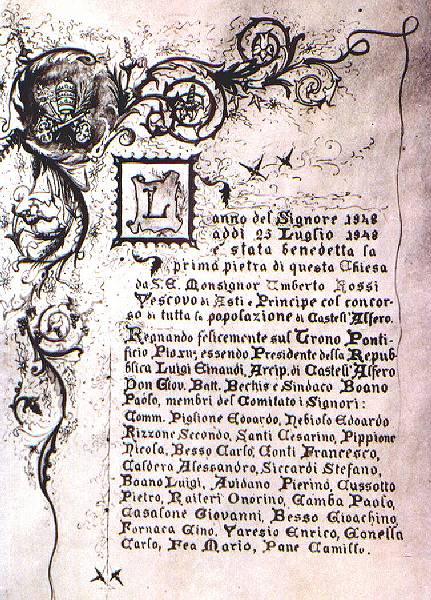 L anno del Signore 1948
addi 25 Luglio 1948
e' stata benedetta la
prima pietra di questa Chiesa
da S.E. Monsignor Umberto Rossi
Vescovo di Asti e Principe col concor-
so di tutta la popolazione di Castell'Alfero.
Regnando felicemente sul Trono Ponti-
ficio Pio XII; essendo Presidente della Repub-
blica Luigi Einaudi, Arcip. di Castell'Alfero
Don Giov. Batt. Bechis e Sindaco Boano
Paolo, membri del Comitato i Signori:
Comm. Piglione Edoardo, Nebiolo Edoardo
Rizzone Secondo, Santi Cesarino, Pippione
Nicola, Besso Carlo, Conti Francesco,
Caldera Alessandro, Siccardi Stefano,
Boano Luigi, Avidano Pierino, Cussotto
Pietro, Raiteri Onorino, Gamba Paolo,
Casalone Giovanni, Besso Gioachino,
Fornaca Gino, Varesio Enrico, Gonella
Carlo, Fea Mario, Pane Camillo.